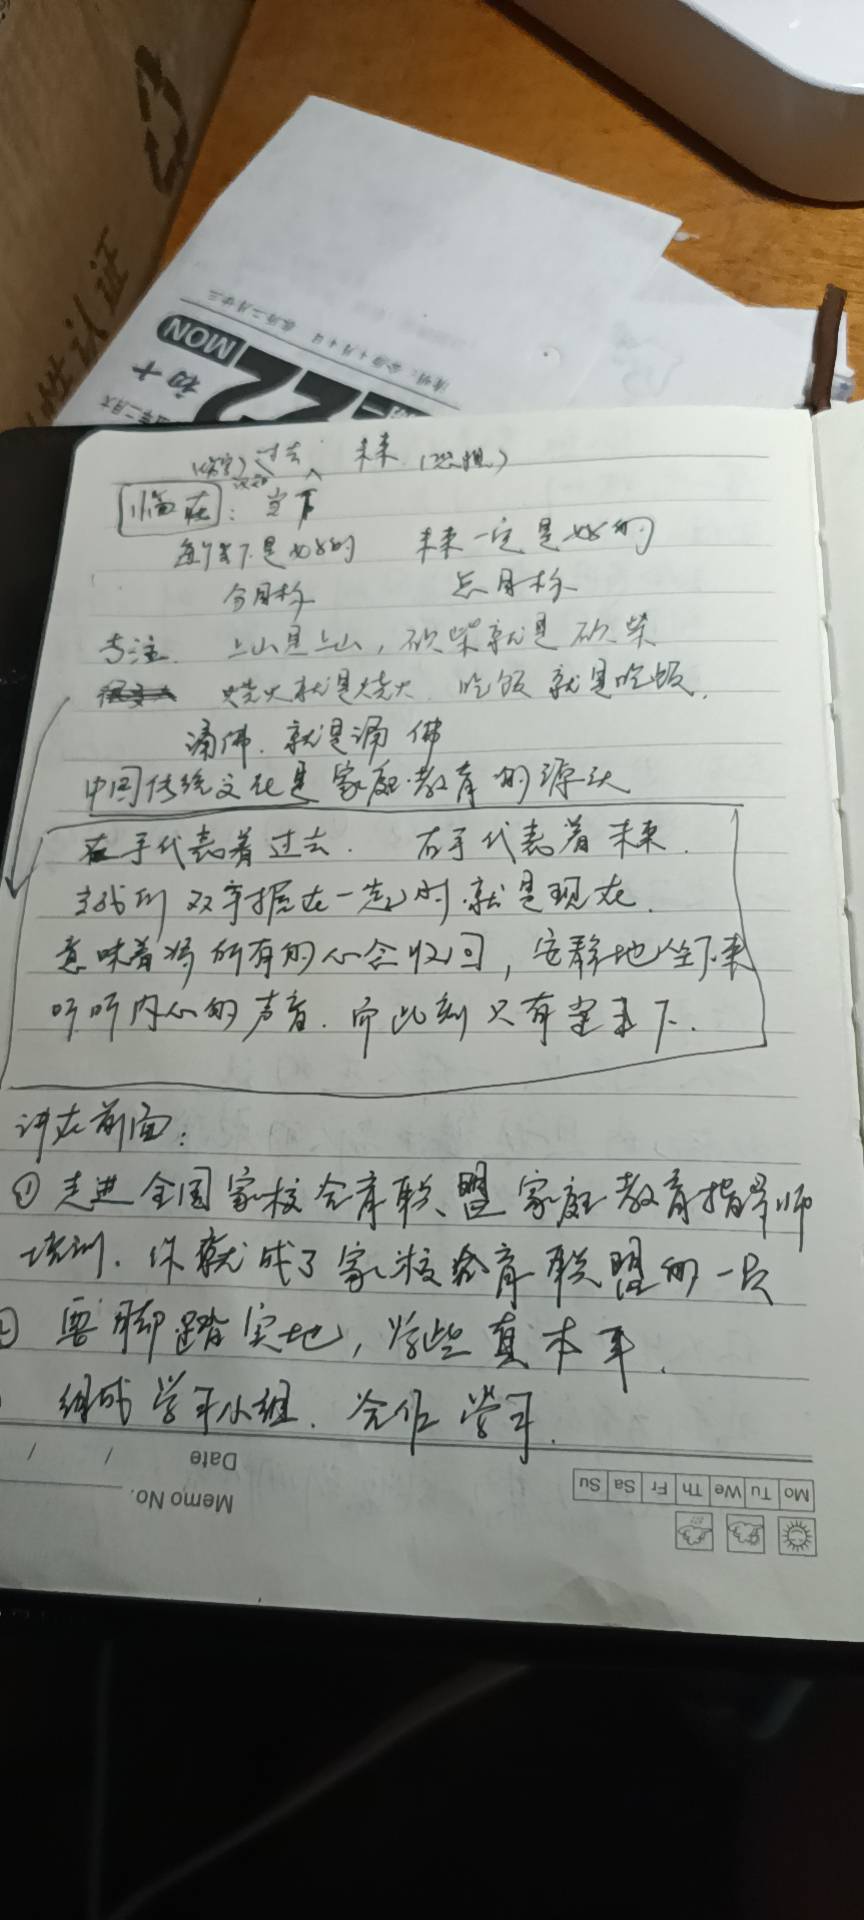 性认证
MON
初十
22
清明：公历4月4日 农历二月廿三
过去 未来（恐惧）
临在：当下
每个当下是好的 未来一定是好的
分目标 总目标
专注 上山是上山，砍柴就是砍柴
烧火就是烧火 吃饭就是吃饭，
诵佛．就是诵佛
中国传统文化是家庭教育的源头
左手代表着过去． 右手代表着未来．
当我们双手握在一起时．就是现在．
意味着将所有的心念收回，安静地坐下来
听听内心的声音．而此刻只有当下．
讲在前面：
① 走进全国家校合育联盟家庭教育指导师
培训．你就成了家校合育联盟的一员
② 要脚踏实地，学些真本事．
组成学习小组．合作学习．
Date / /
Memo No.
Mo Tu We Th Fr Sa Su